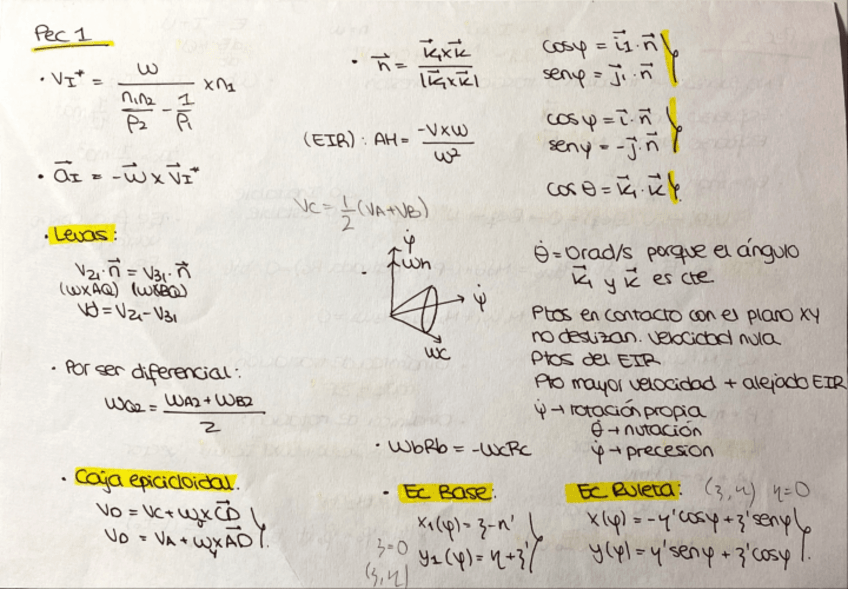 Pec 1
· V_I* = ω / (n₁n₂/ρ₂ - 1/ρ₁) × n₁
· a⃗_I = -ω⃗ × V⃗_I*
· Levas:
V₂₁·n⃗ = V₃₁·n⃗
(ω×AQ) (ω×BQ)
Vd = V₂₁ - V₃₁
· Por ser diferencial:
ω_Q2 = (ω_A2 + ω_B2) / 2
· Caja epicicloidal.
V_D = V_C + ω × C⃗D⃗
V_D = V_A + ω × A⃗D⃗
· n⃗ = (k⃗₁×k⃗) / |k⃗₁×k⃗|
(EIR) : AH = (-V×ω) / ω²
V_C = 1/2 (V_A + V_B)
φ̇
ωn
ψ̇
ωc
· ωbRb = -ωcRc
· Ec Base:
x₁(φ) = ξ - η'
y₁(φ) = η + ξ'
ξ=0
(ξ,η)
cosφ = i⃗₁·n⃗
senφ = j⃗₁·n⃗
cosψ = i⃗·n⃗
senψ = -j⃗·n⃗
cosθ = k⃗₁·k⃗
θ̇ = 0rad/s porque el ángulo
k⃗₁ y k⃗ es cte
Ptos en contacto con el plano XY
no deslizan. velocidad nula
Ptos del EIR
Pto mayor velocidad + alejado EIR
ψ̇ → rotación propia
θ̇ → nutación
φ̇ → precesión
Ec Ruleta: (ξ,η) η=0
x(φ) = -η'cosφ + ξ'senφ
y(φ) = η'senφ + ξ'cosφ